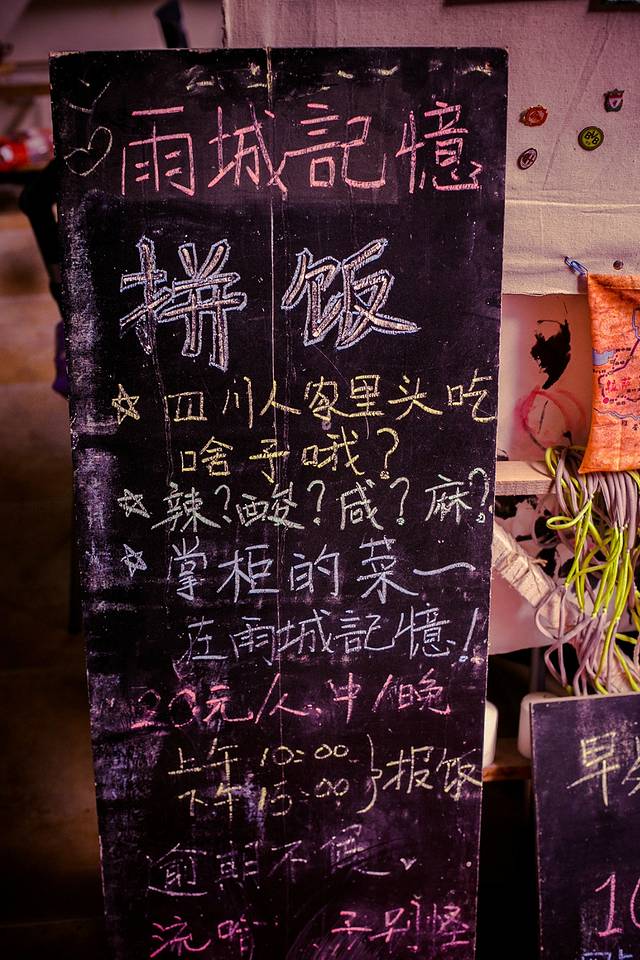 雨城記憶
拼饭
☆四川人家里头吃
啥子哦？
☆辣？酸？咸？麻？
☆掌柜的菜一
在雨城記憶！
20元/人.中/晚
上午 10:00
下午 15:00
}报饭
逾期不候.
流哈 子别怪
早
10